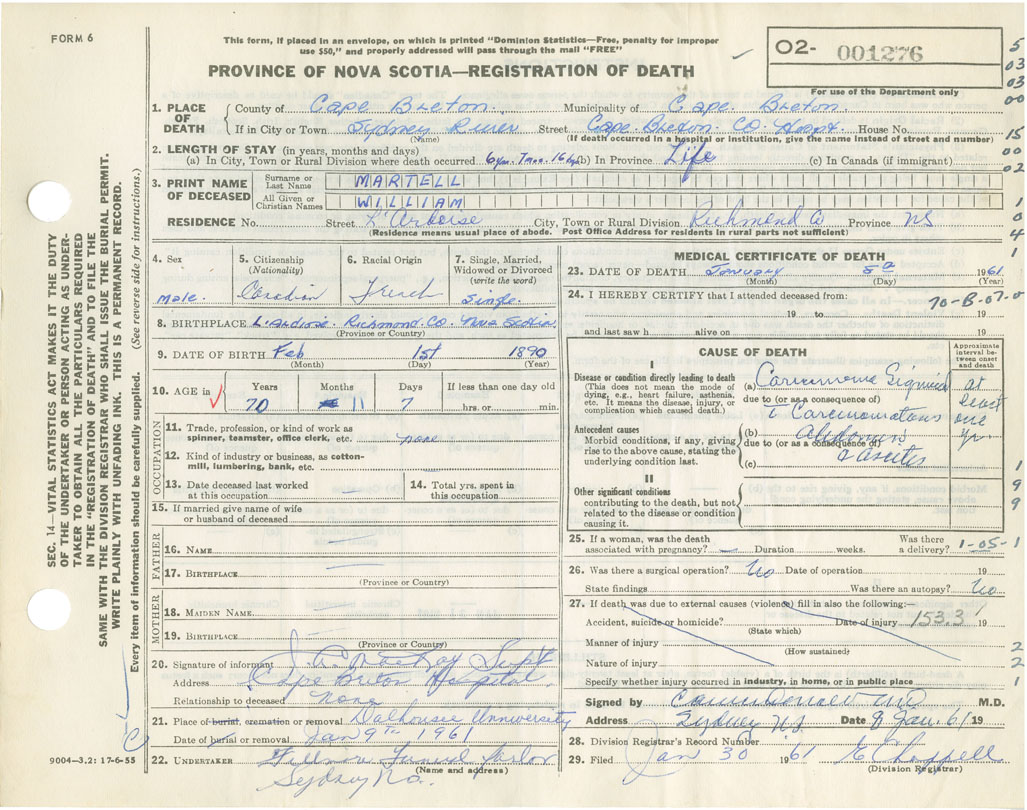 FORM 6
This form, if placed in an envelope, on which is printed "Dominion Statistics—Free, penalty for improper
use $50," and properly addressed will pass through the mail "FREE"
02- 001276
PROVINCE OF NOVA SCOTIA—REGISTRATION OF DEATH
For use of the Department only
5
03
03
00
15
00
02
1
0
4
1
1. PLACE OF DEATH
County of Cape Breton Municipality of Cape Breton
If in City or Town Sydney River Street Cape Breton Co. Hospt. House No.
(Name) (If death occurred in a hospital or institution, give the name instead of street and number)
2. LENGTH OF STAY (in years, months and days)
(a) In City, Town or Rural Division where death occurred 6 yrs. 7 mos. 16 dys (b) In Province Life (c) In Canada (if immigrant)
3. PRINT NAME OF DECEASED
Surname or Last Name MARTELL
All Given or Christian Names WILLIAM
RESIDENCE No. Street L'Ardoise City, Town or Rural Division Richmond Co Province NS
(Residence means usual place of abode. Post Office Address for residents in rural parts not sufficient)
4. Sex male.
5. Citizenship (Nationality) Canadian
6. Racial Origin French
7. Single, Married, Widowed or Divorced (write the word) Single.
8. BIRTHPLACE L'Ardoise. Richmond. Co. Nova Scotia
(Province or Country)
9. DATE OF BIRTH Feb 1st 1890
(Month) (Day) (Year)
10. AGE in Years 70 Months 11 Days 7 If less than one day old hrs. or min.
OCCUPATION
11. Trade, profession, or kind of work as
spinner, teamster, office clerk, etc. none
12. Kind of industry or business, as cotton-
mill, lumbering, bank, etc.
13. Date deceased last worked
at this occupation
14. Total yrs. spent in
this occupation
15. If married give name of wife
or husband of deceased
FATHER
16. NAME
17. BIRTHPLACE
(Province or Country)
MOTHER
18. MAIDEN NAME
19. BIRTHPLACE
(Province or Country)
20. Signature of informant Supt
Address Cape Breton Hospital
Relationship to deceased none
21. Place of burial, cremation or removal Dalhousie University
Date of burial or removal Jan 9th 1961
22. UNDERTAKER Funeral Parlor
(Name and address)
Sydney N.S.
MEDICAL CERTIFICATE OF DEATH
23. DATE OF DEATH January 5th 1961
(Month) (Day) (Year)
24. I HEREBY CERTIFY that I attended deceased from:
70-B-07-0
19 to 19
and last saw h alive on 19
CAUSE OF DEATH
Approximate interval between onset and death
I
Disease or condition directly leading to death
(This does not mean the mode of
dying, e.g., heart failure, asthenia,
etc. It means the disease, injury, or
complication which caused death.)
(a) Carcinoma Sigmoid
due to (or as a consequence of)
at least one yr
Antecedent causes
Morbid conditions, if any, giving
rise to the above cause, stating the
underlying condition last.
Carcinomatous
(b) Abdomen
due to (or as a consequence of)
& ascites
(c)
II
Other significant conditions
contributing to the death, but not
related to the disease or condition
causing it.
1
9
9
25. If a woman, was the death
associated with pregnancy? Duration weeks. Was there a delivery? 1-05-1
26. Was there a surgical operation? No Date of operation 19
State findings Was there an autopsy? No
27. If death was due to external causes (violence) fill in also the following:—
Accident, suicide or homicide? Date of injury 153.3 19
(State which)
Manner of injury
(How sustained)
Nature of injury
Specify whether injury occurred in industry, in home, or in public place
2
2
1
Signed by M.D.
Address Sydney N.S. Date 8 Jan. 61 19
28. Division Registrar's Record Number
29. Filed Jan 30 1961 E Chappell
(Division Registrar)
SEC. 14—VITAL STATISTICS ACT MAKES IT THE DUTY
OF THE UNDERTAKER OR PERSON ACTING AS UNDER-
TAKER TO OBTAIN ALL THE PARTICULARS REQUIRED
IN THE "REGISTRATION OF DEATH" AND TO FILE THE
SAME WITH THE DIVISION REGISTRAR WHO SHALL ISSUE THE BURIAL PERMIT.
WRITE PLAINLY WITH UNFADING INK. THIS IS A PERMANENT RECORD.
Every item of information should be carefully supplied. (See reverse side for instructions.)
C
9004—3.2: 17-6-55